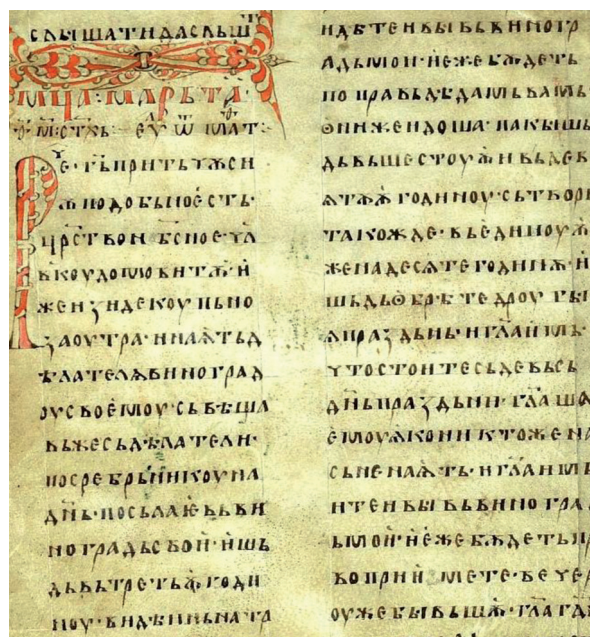 слꙑшатидаслꙑшⷮ
мц҃а· марьта·
м҃стхъ· еѵ҃ ѿ мат҃:
Рⷱе· г҃ьпритъчѫси
ѭподобьноестъ·
цр҃ствонб҃сноечл҃
вкоудомовитѫ· и
жеизидекоупьно
заоутра· инаѩтъд
ѣлателѧвиноград
оусвоемоу· съвѣща
въжесъдѣлатели·
посребрьникоуна
дн҃ь· посълаѩвъви
ноградъсвои· ишь
дъвътретьѭгоди
ноу· видѣинꙑнатр
идѣтеивꙑвъвиногр
адъмои· иежебѫдетъ
поправьдѣдамьвамъ·
ѳнижеидоша· пакꙑишь
дъвъшестоуѭивъдев
ѧтѫѭгодиноу· сътвори
такожде· въединоуѭ
женадесѧтегодинѫ· и
шьдъѳбрѣтедроугꙑ
ѩпраздьнꙑ· игл҃аимъ·
чтостоитесьдевьсь
дн҃ьпраздьни· гл҃ашѧ
емоуѩконикътожена
съненаѩтъ· игл҃аимъ
итеивꙑвъвиногра
ьмои· иежебѫдетъпр
воприимете· вечер
оужебꙑвъшѫ· гл҃агд҃н